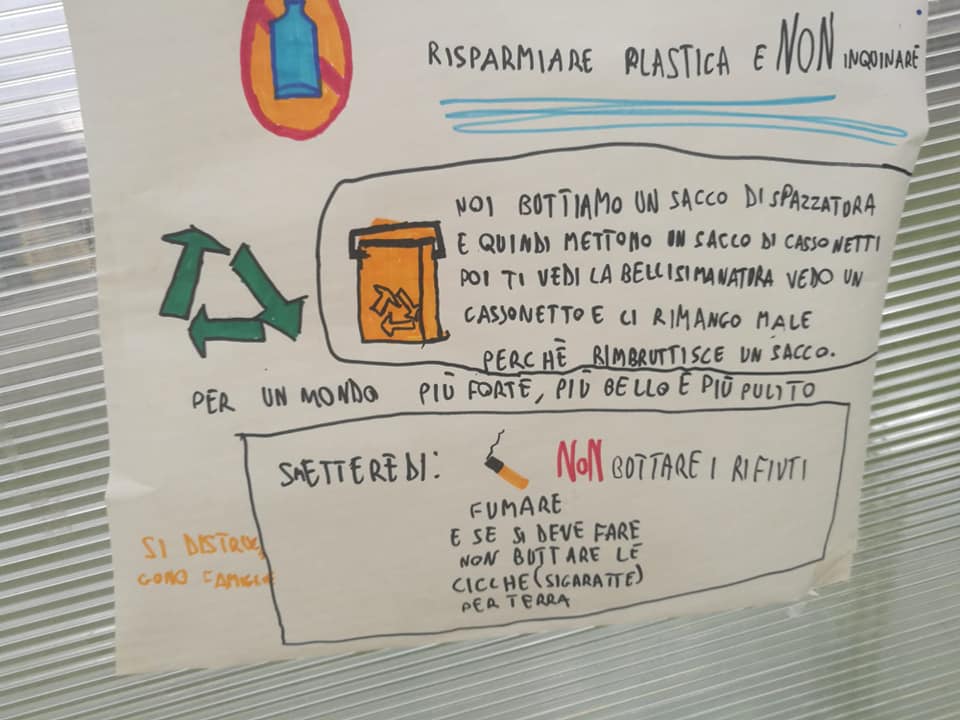 RISPARMIARE PLASTICA E NON INQUINARE
NOI BOTTIAMO UN SACCO DI SPAZZATORA
E QUINDI METTOMO UN SACCO DI CASSONETTI
POI TI VEDI LA BELLISIMANATURA VEDO UN
CASSONETTO E CI RIMANGO MALE
PERCHÈ RIMBRUTTISCE UN SACCO.
PER UN MONDO PIÙ FORTE, PIÙ BELLO E PIÙ PULITO
SMETTERE DI: NON BOTTARE I RIFIUTI
FUMARE
E SE SI DEVE FARE
NON BUTTARE LE
CICCHE (SIGARATTE)
PER TERRA
SI DISTRUG
GONO FAMIGLIE